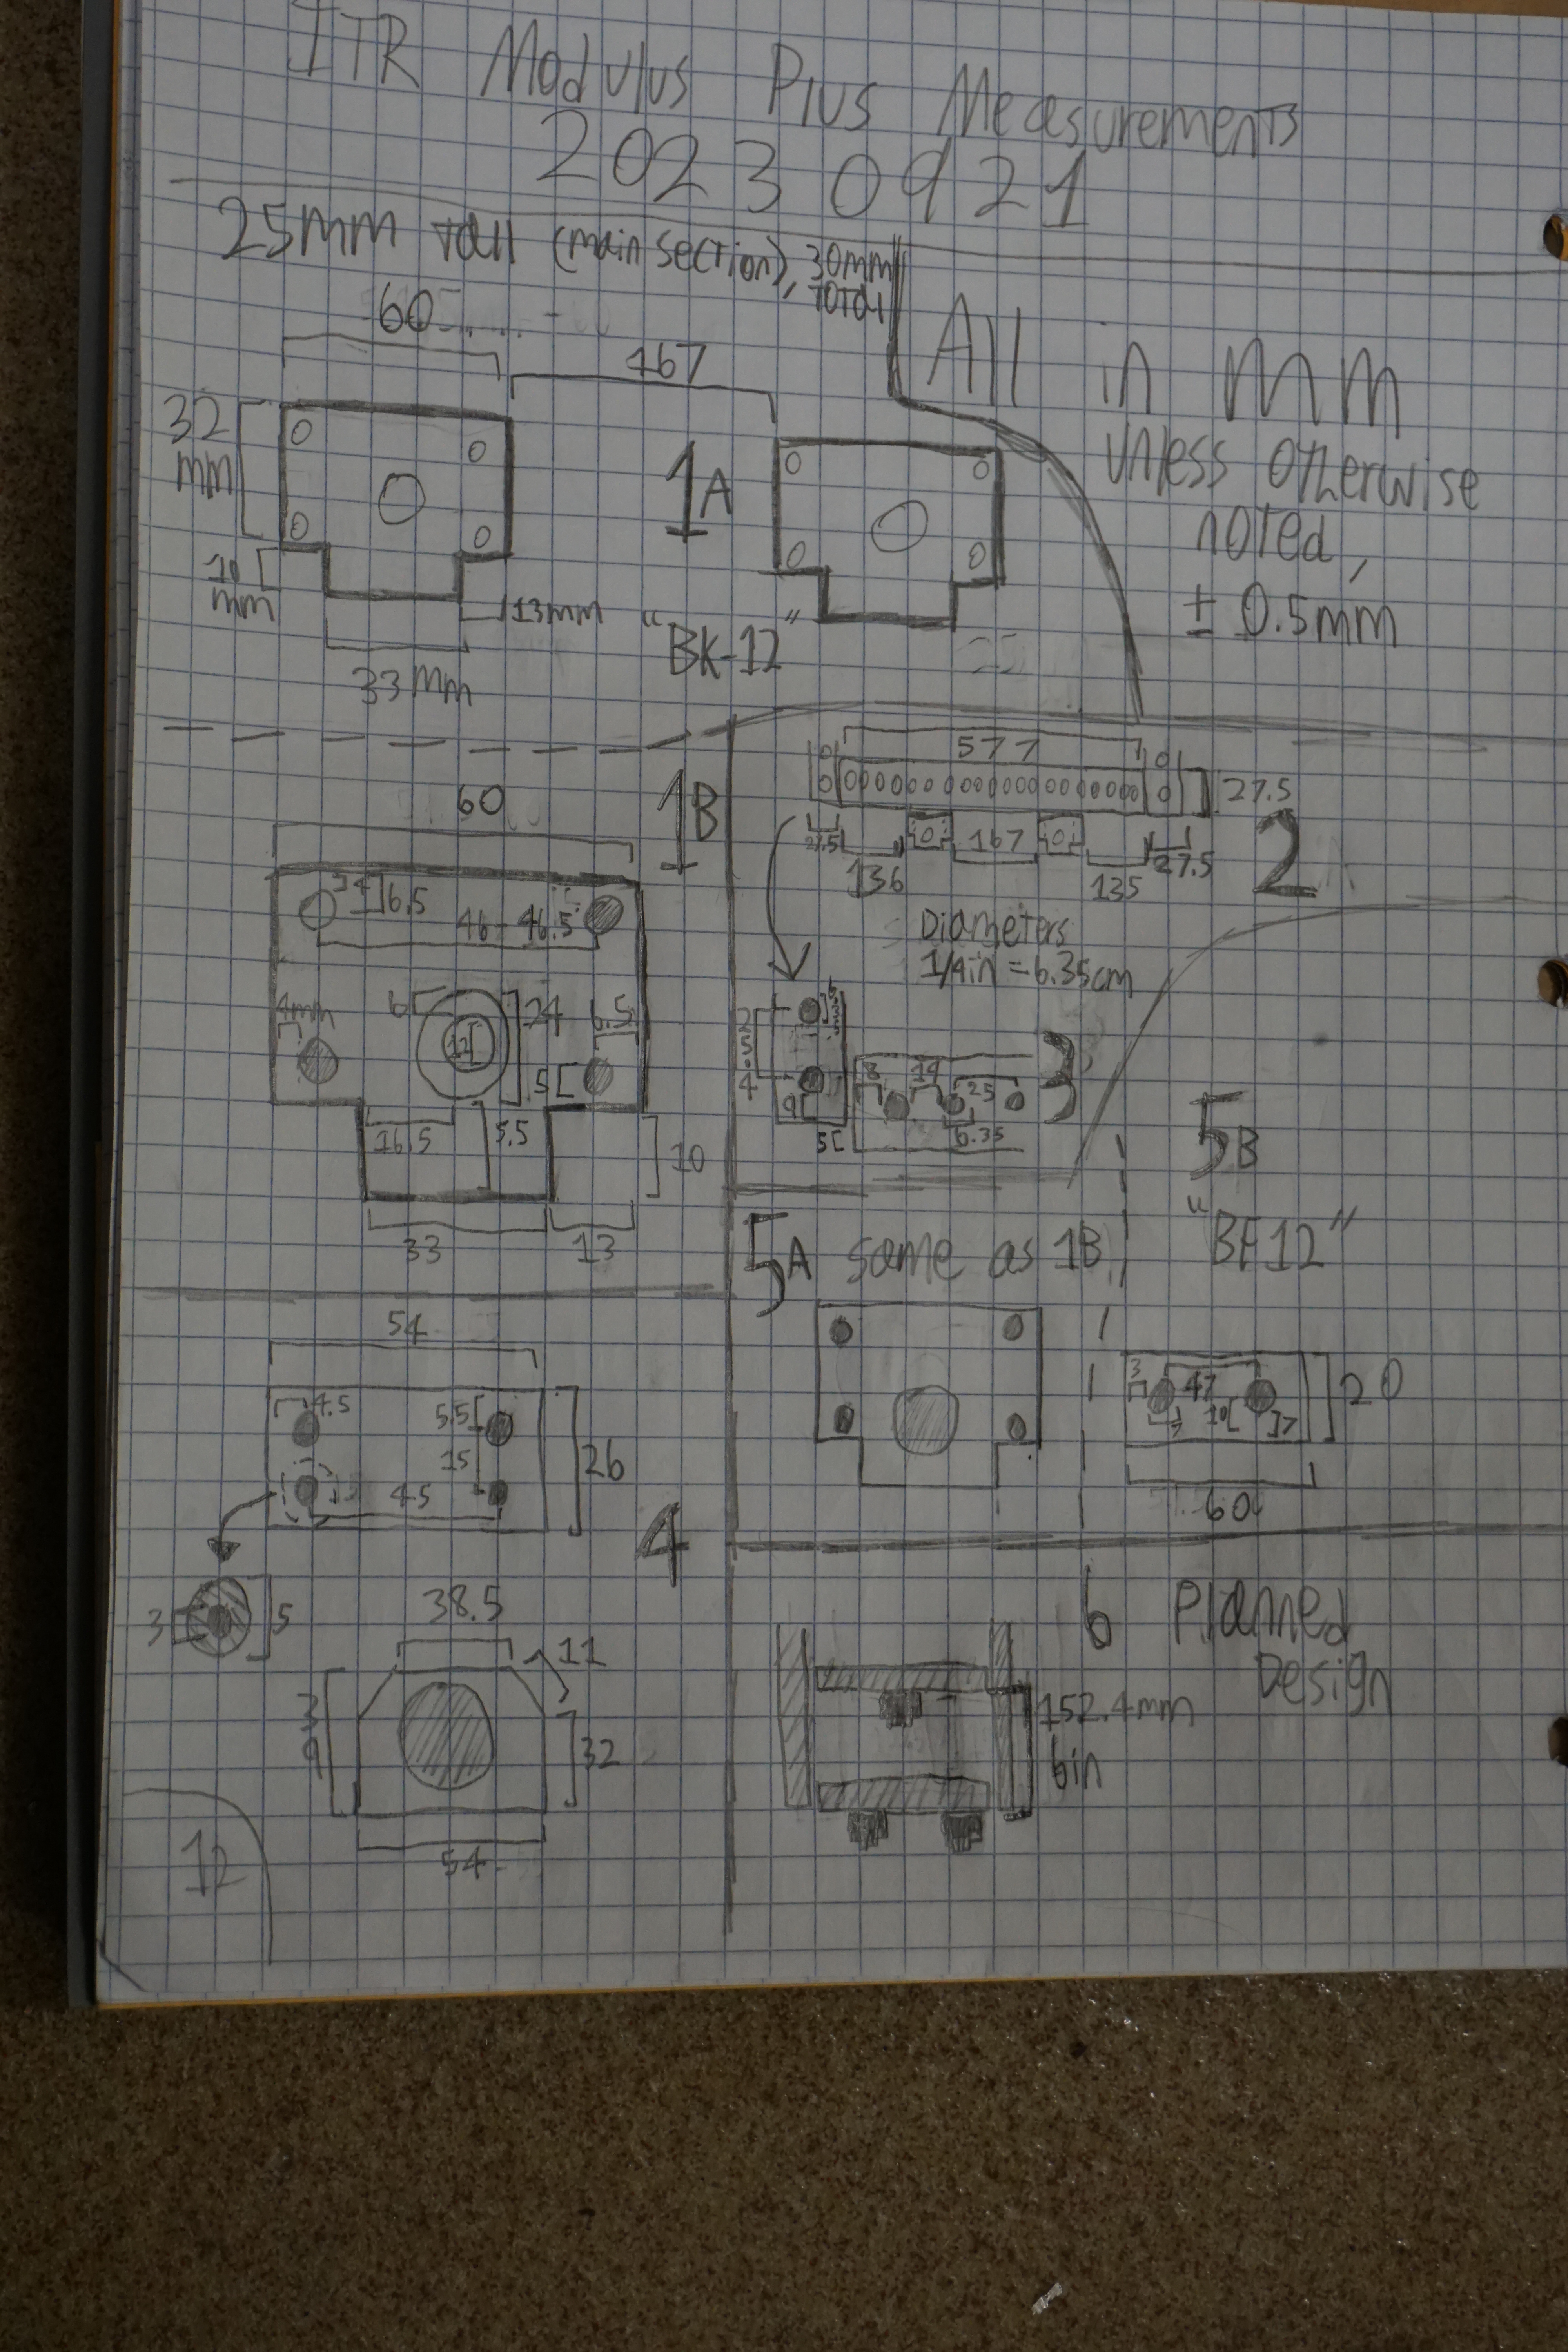 ITR Modulus Plus Measurements
20230921
25mm tall (main section), 30mm
total
All in mm
unless otherwise
noted,
± 0.5mm
60
167
32
mm
1A
10
mm
13mm
33mm
"BK-12"
1B
60
6.5
46-46.5
4mm
6
12
24
6.5
5
16.5
5.5
10
33
13
577
27.5
2
27.5
136
167
135
27.5
Diameters
1/4in = 6.35cm
3
25.4
9
8
19
25
6.35
5
4
54
4.5
5.5
15
45
26
3
5
38.5
11
39
32
54
5A same as 1B
5B
"BF12"
3
47
10
7
20
60
6 Planned
Design
152.4mm
6in
12